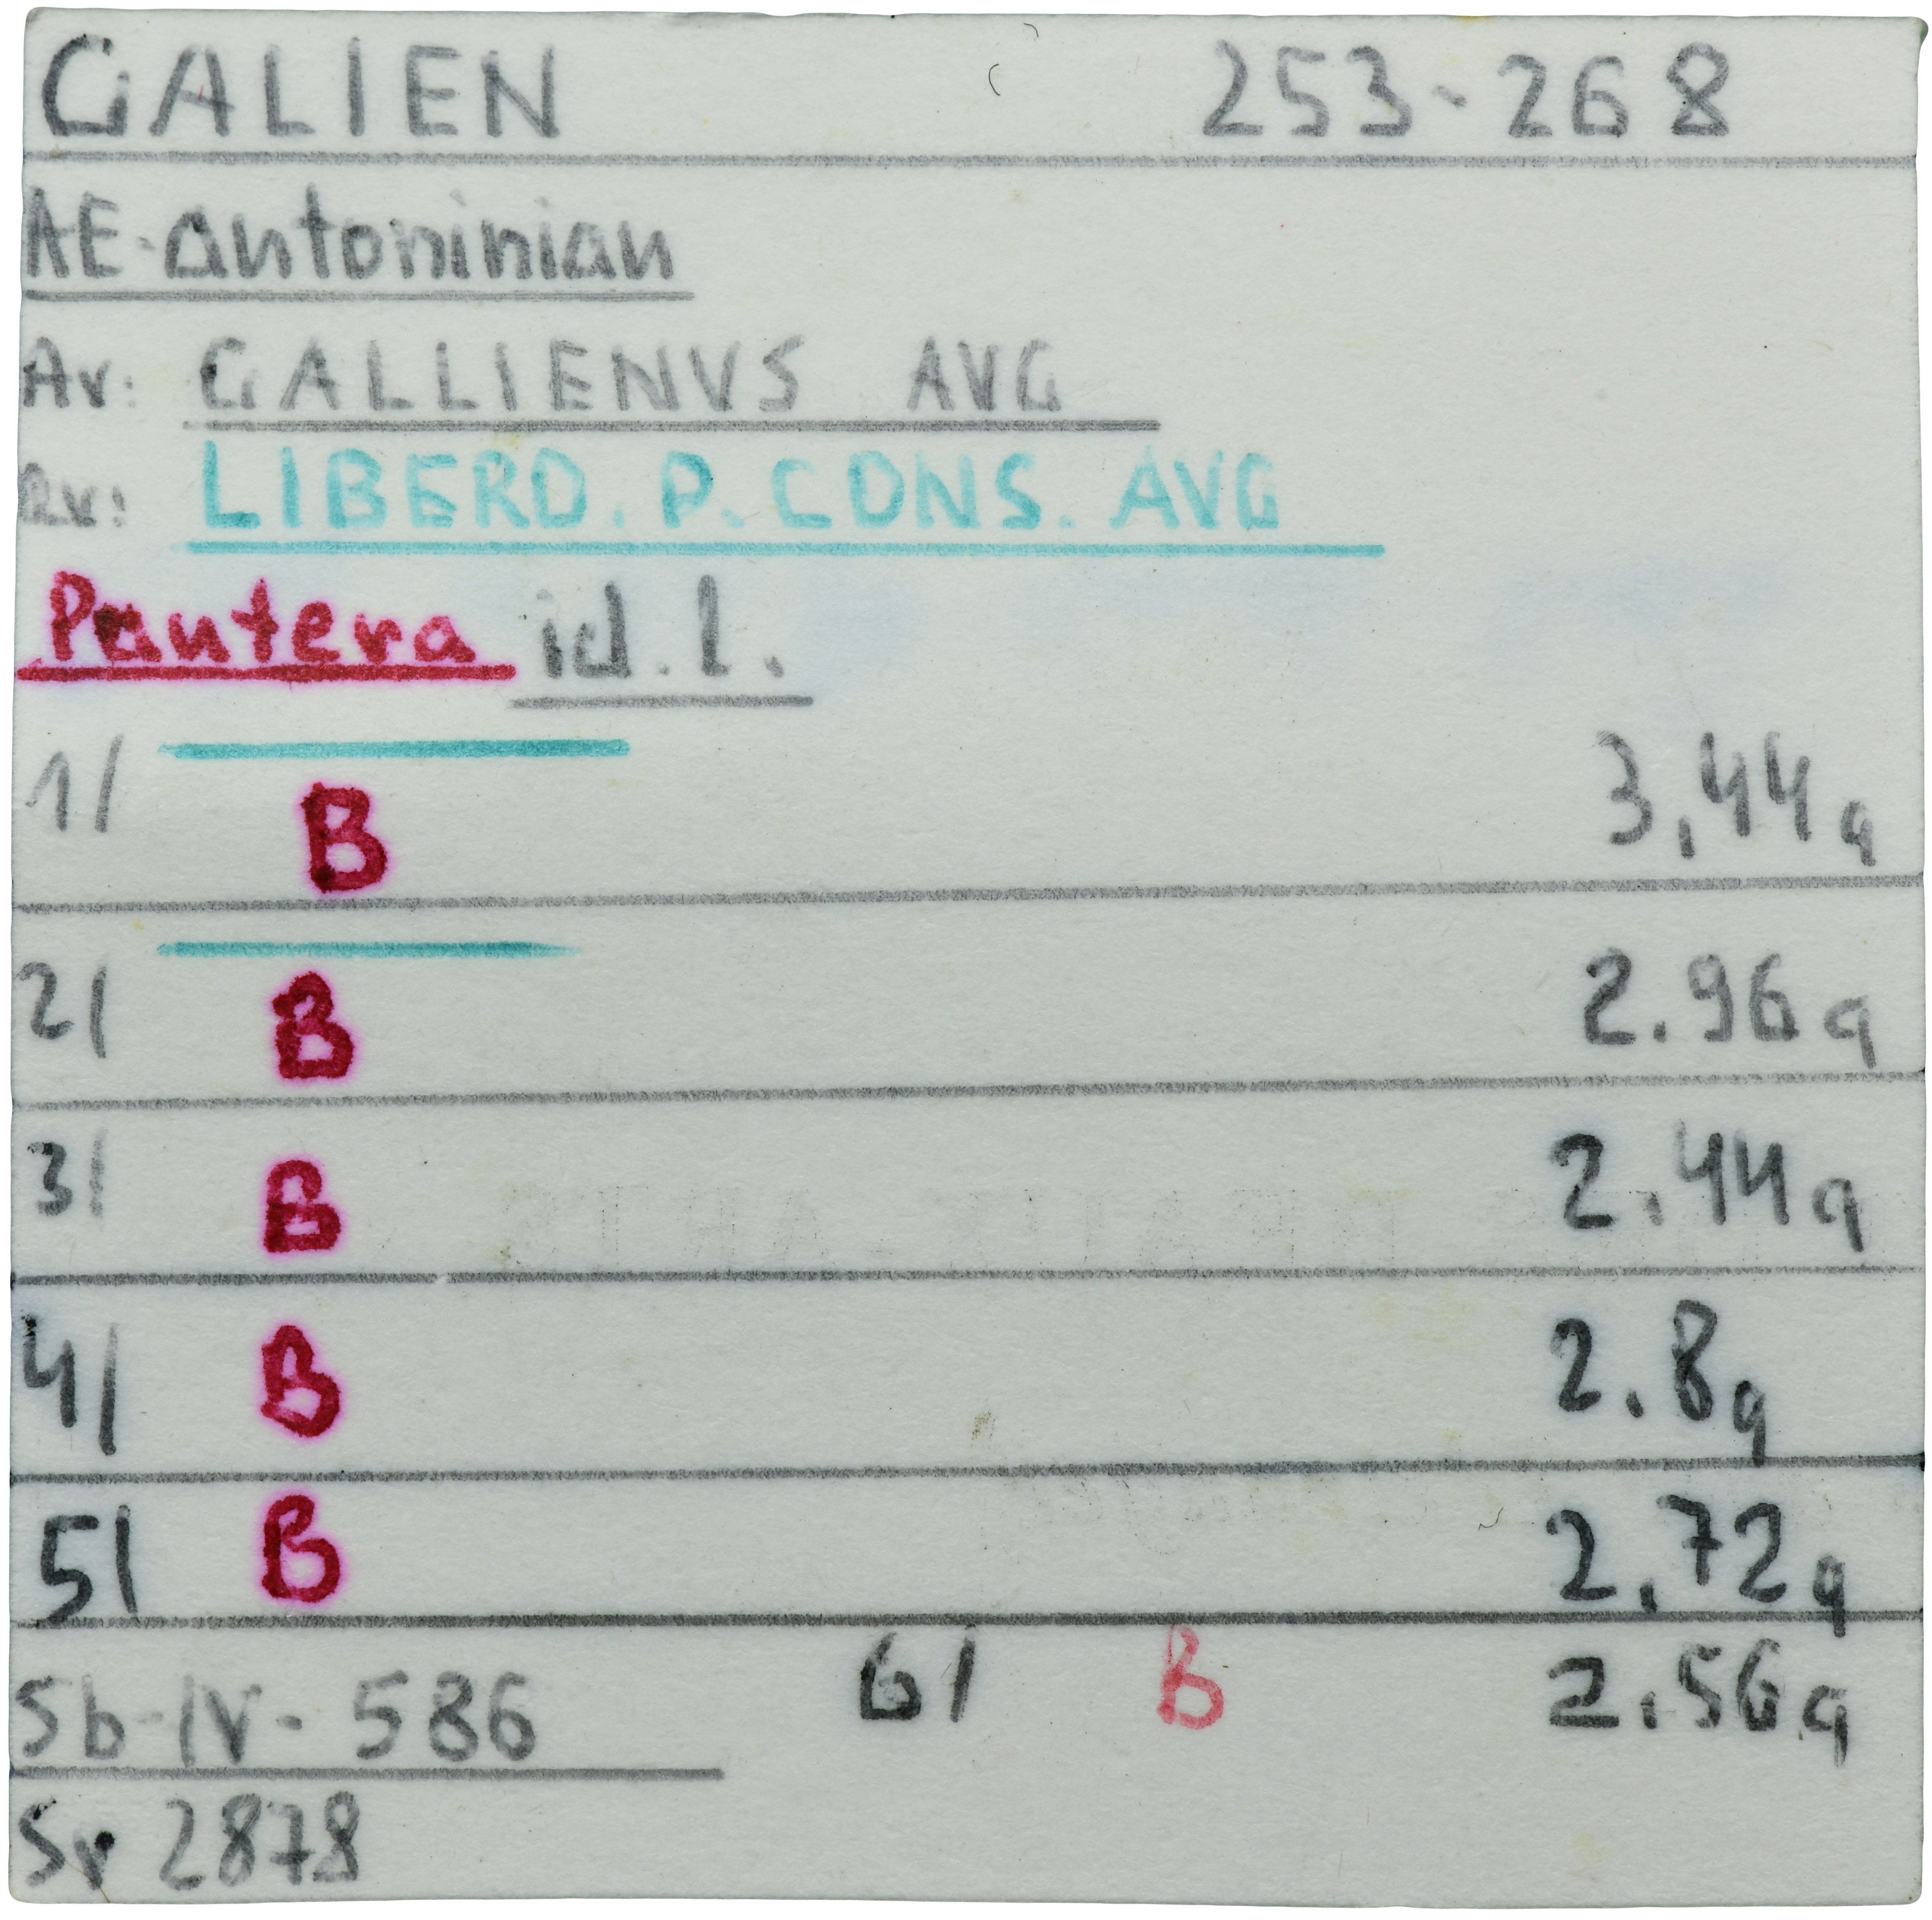 GALIEN 253-268
AE-antoninian
Av: GALLIENVS AVG
Rv: LIBERO. P. CONS. AVG
Pantera id. l.
1/ B 3,44g
2/ B 2.96g
3/ B 2.44g
4/ B 2.8g
5/ B 2.72g
Sb-IV-586 6/ B 2.56g
Sr 2878